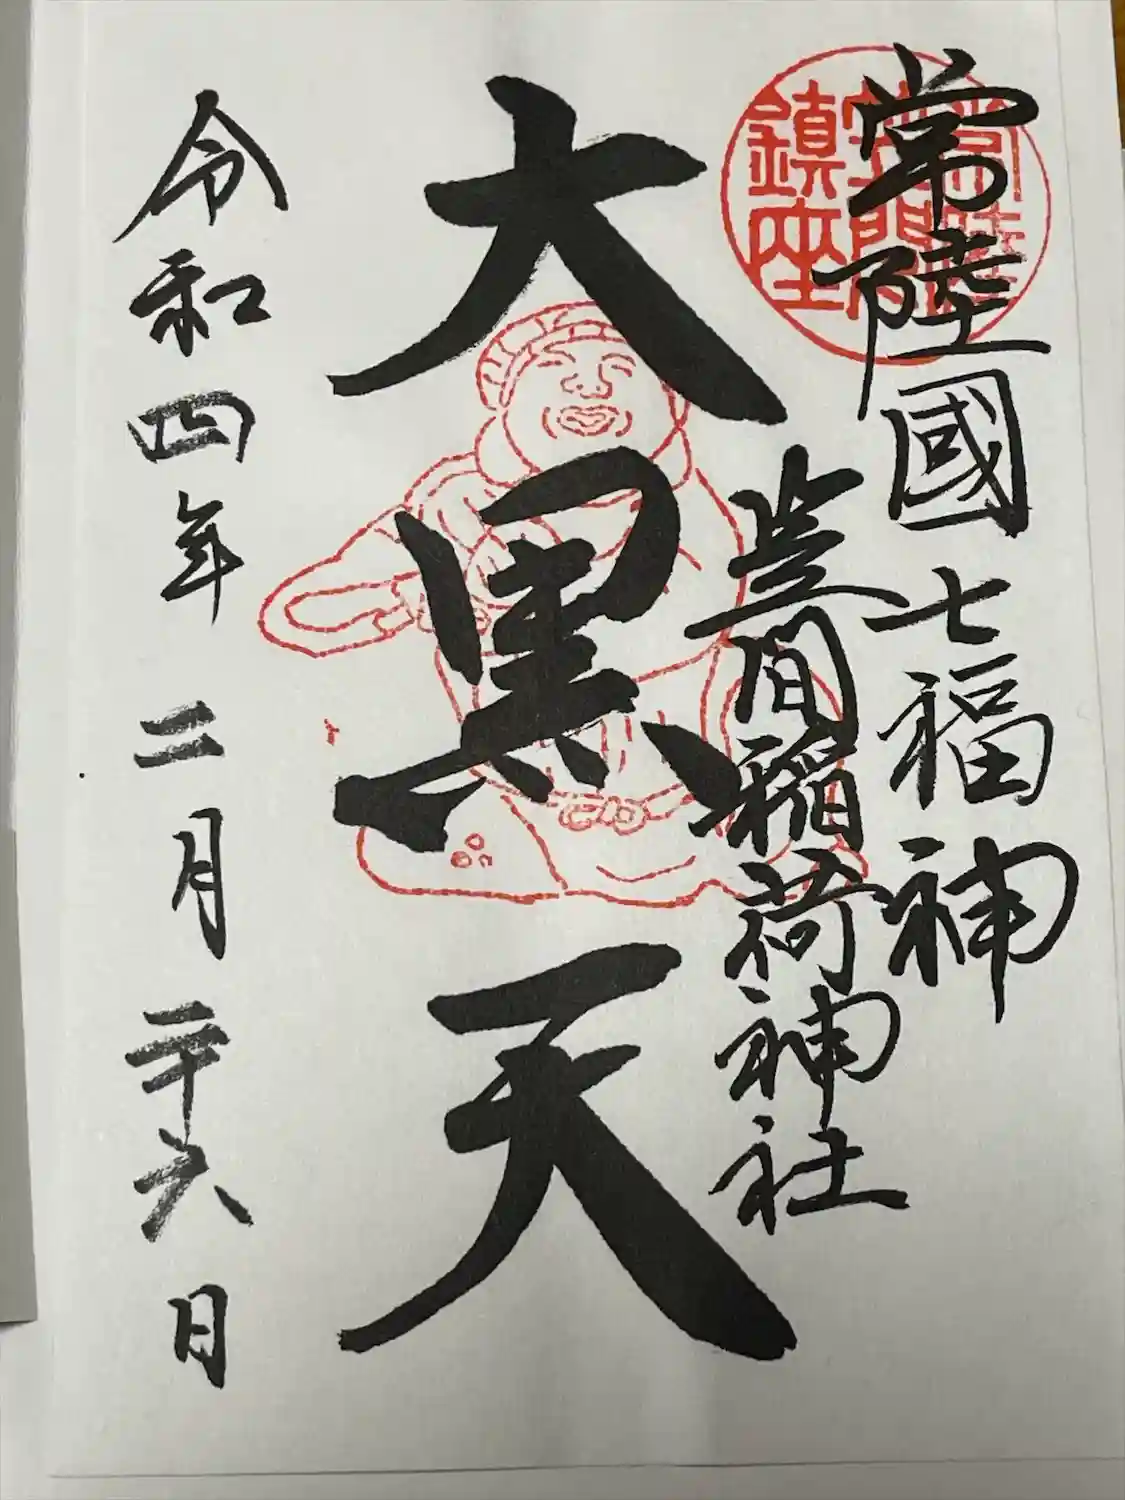 常陸國七福神
笠間稲荷神社
大黒天
令和四年二月二十六日
常陸
笠間
鎮座